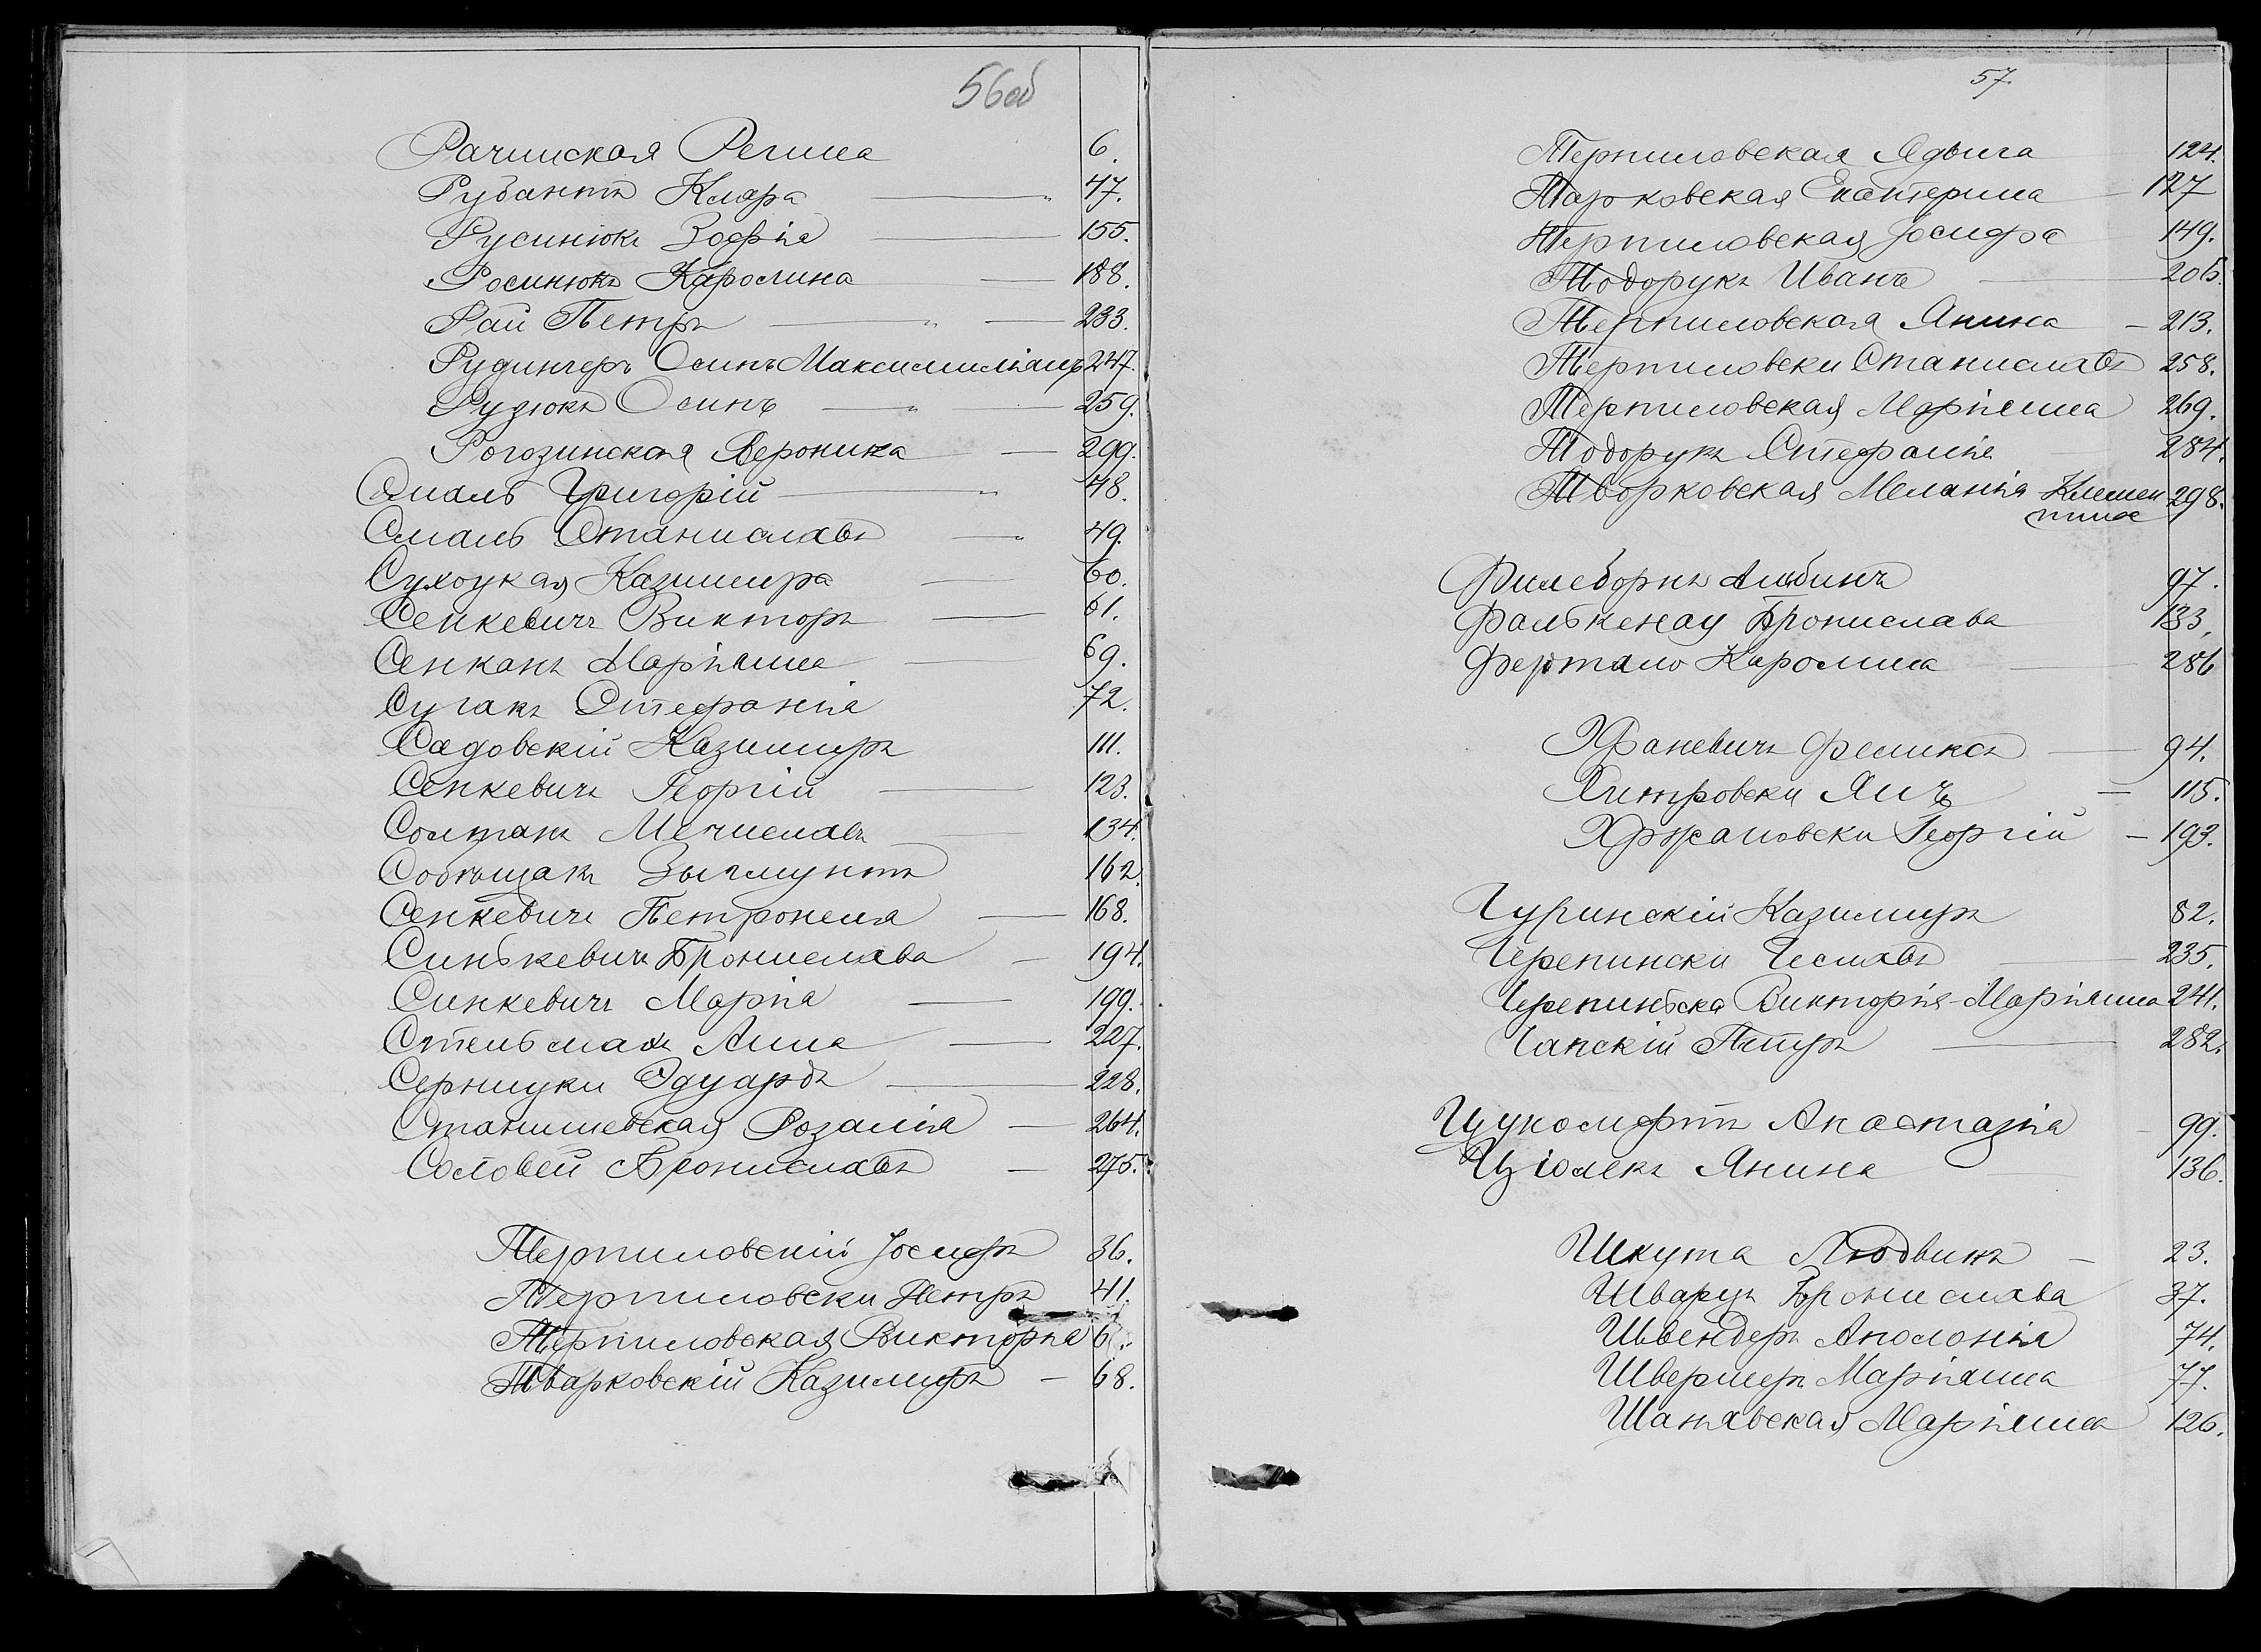 56об
Рачинская Регина 6.
Рубантъ Клара 47.
Русинюкъ Зофія 155.
Росинюкъ Каролина 188.
Рай Петръ 233.
Рудингеръ Осипъ Максимиліанъ 247.
Рудзюкъ Осипъ 259.
Рогозинская Вероника 299.
Смаль Григорій 48.
Смаль Станиславъ 49.
Сухоцкая Казимира 60.
Сенкевичъ Викторъ 61.
Сенканъ Маріянна 69.
Сугакъ Стефанія 72.
Садовскій Казимиръ 111.
Сенкевичъ Георгій 123.
Солтанъ Мечиславъ 134.
Собѣщакъ Зыгмунтъ 162.
Сенкевичъ Петронеля 168.
Синькевичъ Бронислава 194.
Синкевичъ Марія 199.
Стельмахъ Анна 227.
Серницки Эдуардъ 228.
Станишевская Розалія 264.
Соловей Брониславъ 275.
Терпиловскій Іосифъ 36.
Терпиловски Петръ 41.
Терпиловская Викторія
Тварковскій Казимиръ 68.
57.
Терпиловская Ядвига 124.
Тарковская Екатерина 127
Терпиловская Іосифа 149.
Тодорукъ Иванъ 205.
Терпиловская Янина 213.
Терпиловски Станиславъ 258.
Терпиловская Маріянна 269.
Тодорукъ Стефанія 284.
Творковская Меланія Клемен 298.
тина
Филеборнъ Альбинъ 97.
Фалькенау Бронислава 133.
Фертало Каролина 286
Храневичъ Феликсъ 94.
Хитровски Янъ 115.
Хржановски Георгій 193.
Чуринскій Казимиръ 82.
Черепински Чеславъ 235.
Черепиньска Викторія-Маріянна 241.
Чапскій Петръ 282.
Цукольфтъ Анастазія 99.
Цзіолекъ Янина 136.
Шкута Людвикъ 23.
Шварцъ Бронислава 37.
Швендеръ Аполонія 74.
Швермеръ Маріянна 77.
Шанявская Маріянна 126.